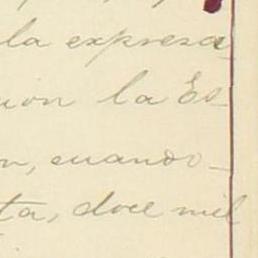 la expresa
ion la Es-
n, cuando-
ta, doce mil